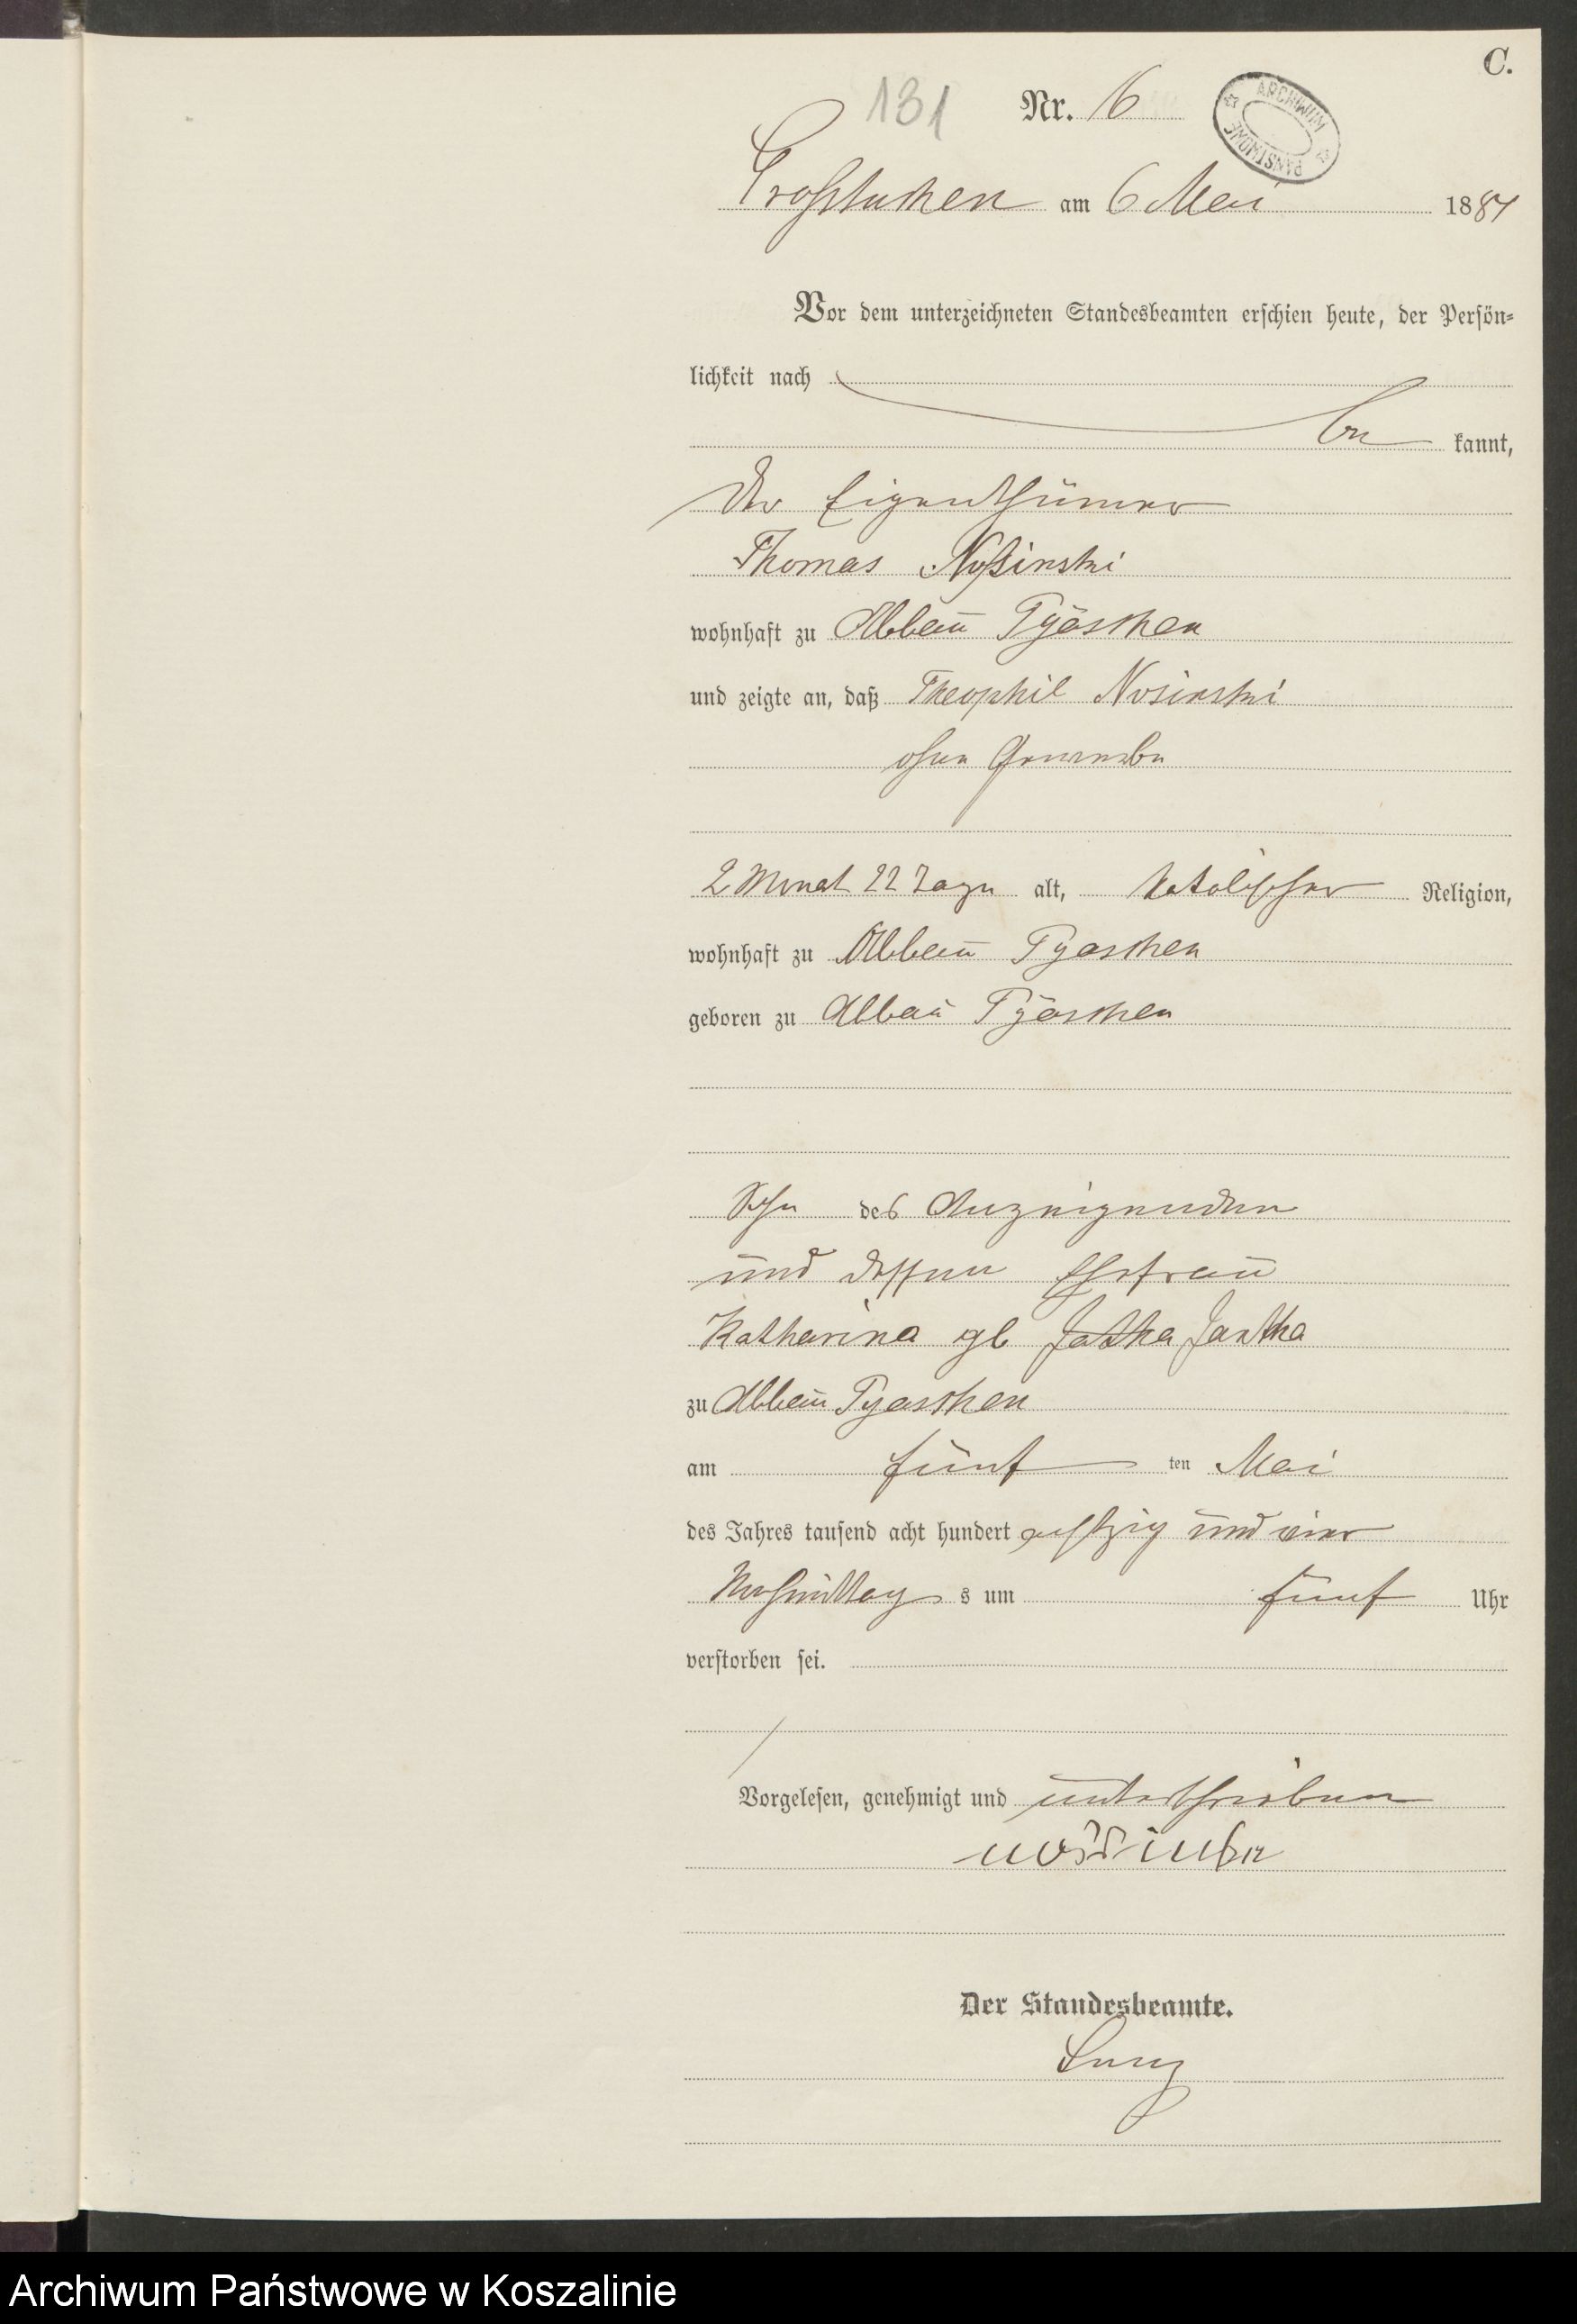 C.
131 Nr. 16
ARCHIWUM PAŃSTWOWE
Großtuchen am 6 Mai 1884
Vor dem unterzeichneten Standesbeamten erschien heute, der Persön-
lichkeit nach
be kannt,
der Eigenthümer
Thomas Noßinski
wohnhaft zu Abbau Pyaschen
und zeigte an, daß Theophil Nosinski
ohne Gewerbe
2 Monat 22 Tage alt, katolischer Religion,
wohnhaft zu Abbau Pyaschen
geboren zu Abbau Pyaschen
Sohn des Anzeigenden
und dessen Ehefrau
Katharina gb Jatka Jantka
zu Abbau Pyaschen
am fünf ten Mai
des Jahres tausend acht hundert achtzig und vier
Nachmittag s um fünf Uhr
verstorben sei.
Vorgelesen, genehmigt und unterschrieben
Der Standesbeamte.
Archiwum Państwowe w Koszalinie